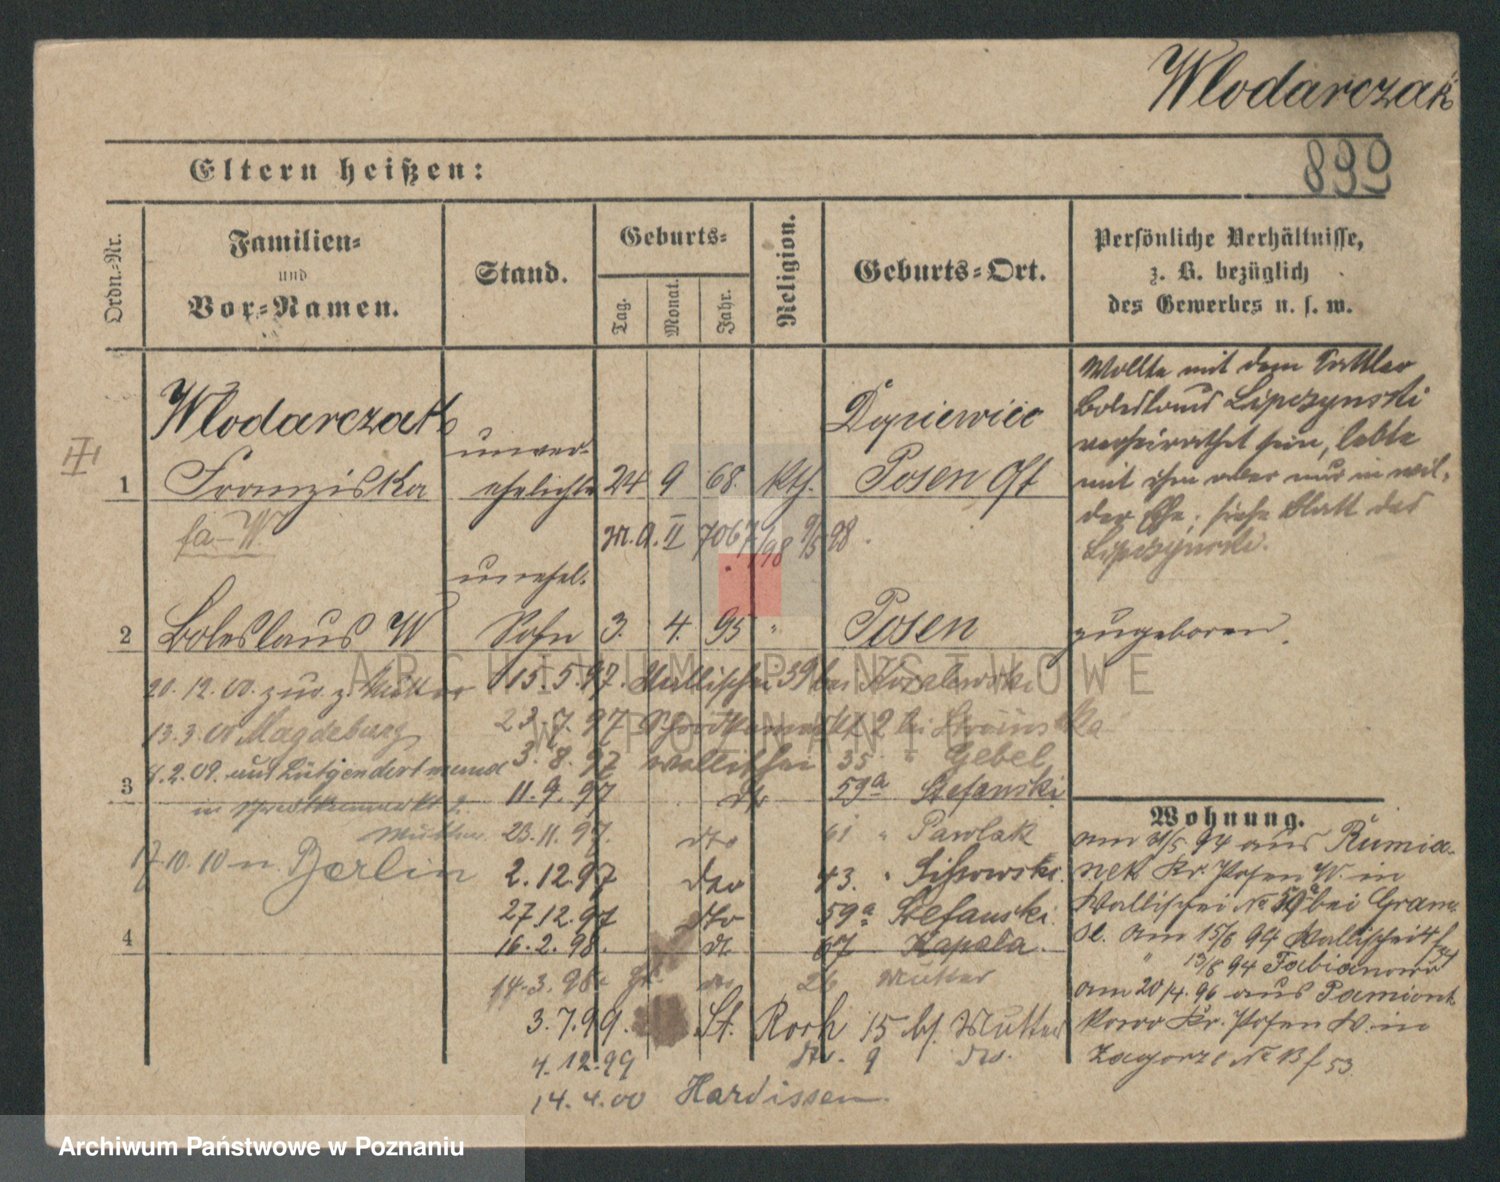 Wlodarczak
899
Eltern heißen:
Ordn.-Nr.
Familien-
und
Vor-Namen.
Stand.
Geburts-
Tag.
Monat.
Jahr.
Religion.
Geburts-Ort.
Persönliche Verhältnisse,
z. B. bezüglich
des Gewerbes u. s. w.
Wlodarczak
unver-
1 Franziska ehelichte 24 9 68 kth. Posen Ost
Wollte mit dem Sattler
Boleslaus Lipczynski
verheirathet sein, lebte
mit ihm aber nur in wil-
der Ehe; siehe Blatt des
Lipczynski.
unehel.
2 Boleslaus W Sohn 3. 4. 95 " Posen zugeboren.
20.12.00. zur. z. Mutter 15.5.97. Wallischei 39 bei
13.3.00 Magdeburg 23.7.97
3.8.97 Wallischei 35 " Gebel
3 11.9.97 dto 59a Stefanski
Mutter 23.11.97. dto 61 " Pawlak
17 10.10 n. Berlin 2.12.97 dto 43. "
27.12.97 dto 59a Stefanski
4 16.2.98. dto 67 Kapala.
14.3.98 26 Mutter
3.7.99. St. Roch 15 bf. Mutter
4.12.99 dto. 9 dto.
14.4.00 Hardissen.
Wohnung.
am 31/5 94 aus Rumia-
nek Kr. Posen W. in
Wallischei No 59a bei
am 15/6 94 Wallischei
13/8 94 Fabianowo
am 20/4. 96 aus
kowo Kr. Posen W. in
Zagorze No 13 f 53
ARCHIWUM PAŃSTWOWE
W POZNANIU
Archiwum Państwowe w Poznaniu